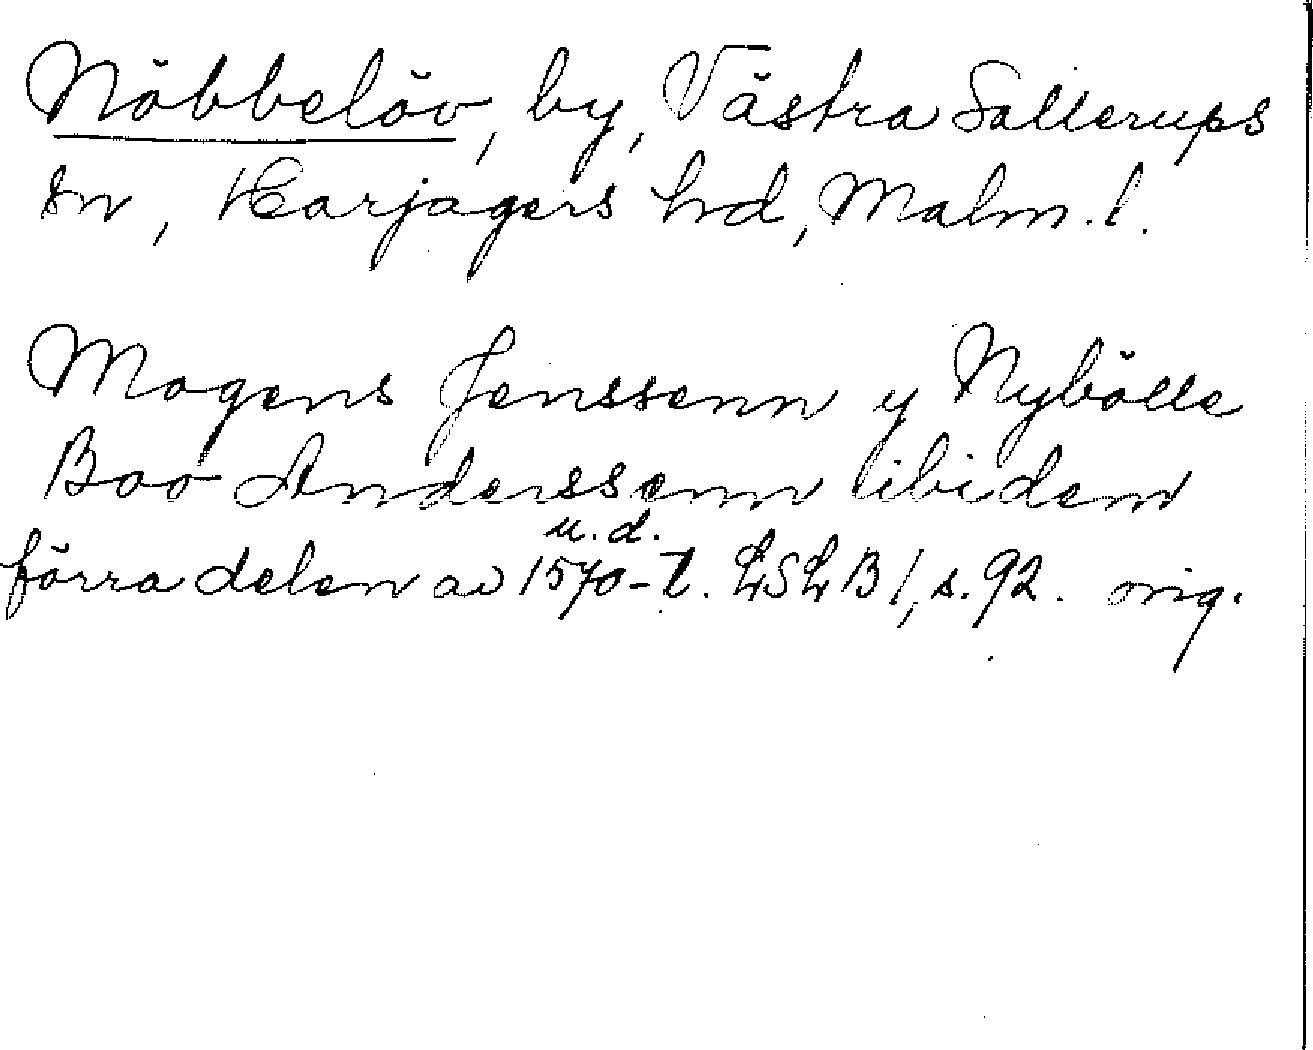 Nöbbelöv, by, Västra Sallerups
sn, Harjagers hd, Malm. l.
Mogens Jenssenn y Nybölle
Boo Anderssenn ibidem
u. d.
förra delen av 1570-t. LSLB I, s. 92. orig.